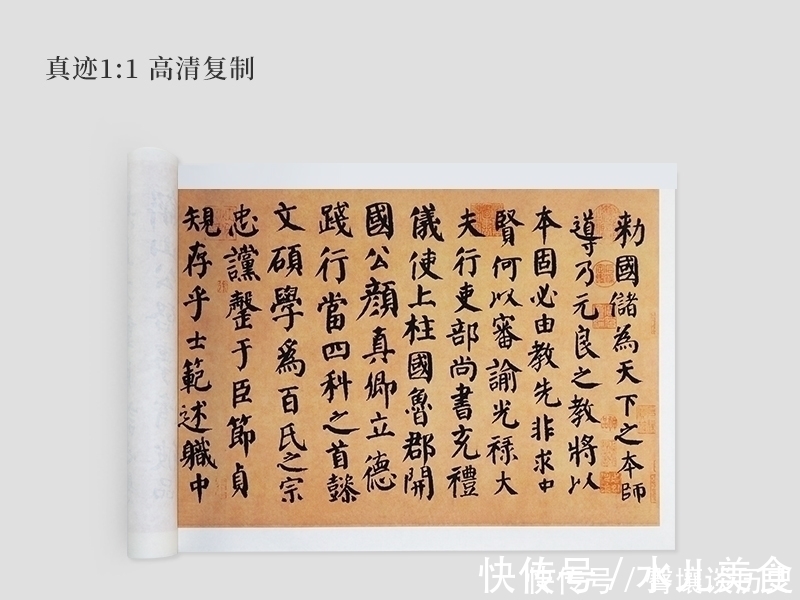 真迹1:1 高清复制
勅國儲為天下之本師
導乃元良之教將以
本固必由教先非求中
賢何以審諭光祿大
夫行吏部尚書充禮
儀使上柱國魯郡開
國公顏真卿立德
踐行當四科之首懿
文碩學爲百氏之宗
忠讜罄于臣節貞
規存乎士範述職中
快传号 / 水儿美食